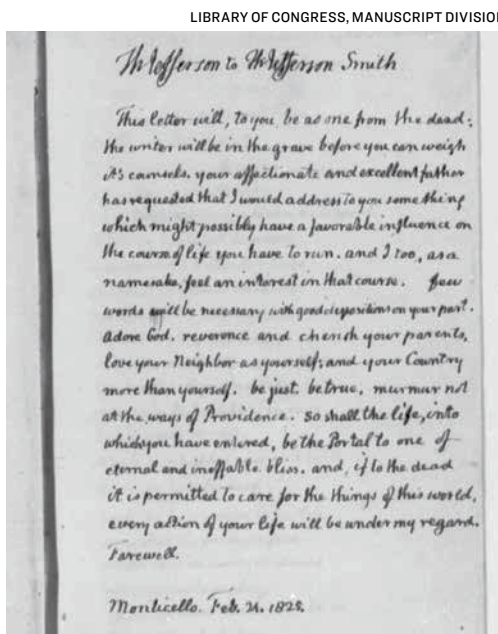 LIBRARY OF CONGRESS, MANUSCRIPT DIVISION
Th Jefferson to Th Jefferson Smith.
This letter will, to you, be as one from the dead;
the writer will be in the grave before you can weigh
it's counsels. your affectionate and excellent father
has requested that I would address to you something
which might possibly have a favorable influence on
the course of life you have to run. and I too, as a
namesake, feel an interest in that course. few
words will be necessary with good dispositions on your part.
adore God. reverence and cherish your parents,
love your Neighbor as yourself; and your Country
more than yourself. be just. be true. murmur not
at the ways of Providence. so shall the life, into
which you have entered, be the Portal to one of
eternal and ineffable bliss. and, if to the dead
it is permitted to care for the things of this world,
every action of your life will be under my regard.
Farewell.
Monticello. Feb. 21. 1825.